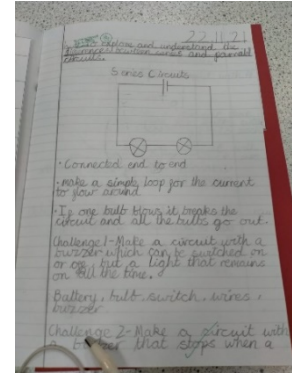 22.11.21
explore and understand the
differences between series and parallel
circuits.
Series Circuits
• Connected end to end
• make a simple loop for the current
to flow around.
• If one bulb blows it breaks the
circuit and all the bulbs go out.
Challenge 1 - Make a circuit with a
buzzer which can be switched on
or off, but a light that remains
on all the time.
Battery, bulb, switch, wires,
buzzer
Challenge 2 - Make a circuit with
a that stops when a